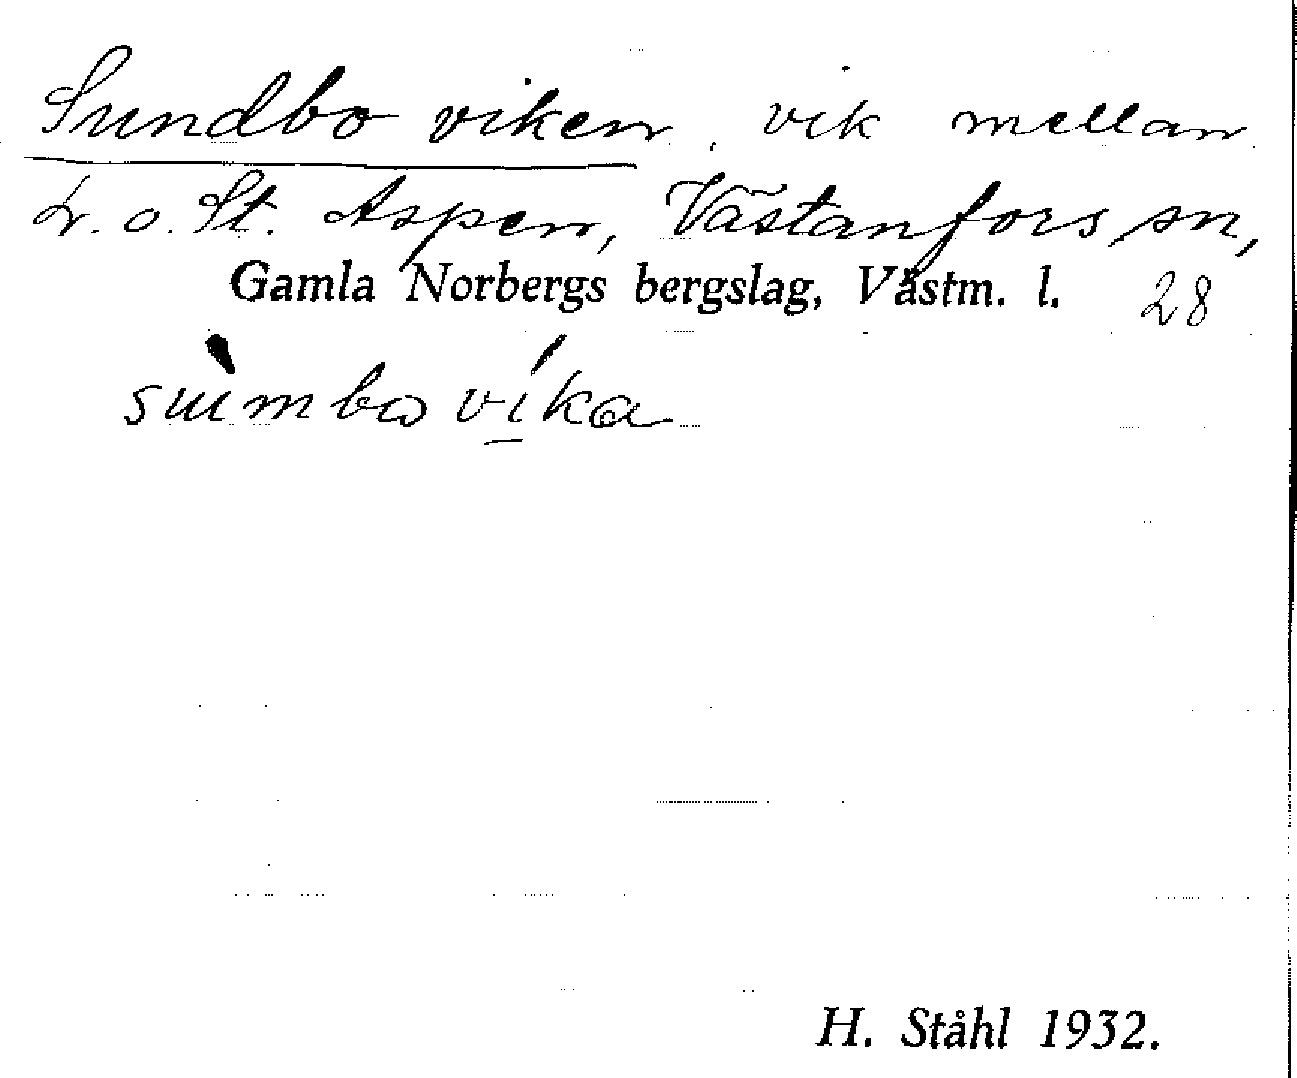 Sundbo viken, vik mellan
L. o. St. Aspen, Västanfors sn,
Gamla Norbergs bergslag, Västm. l. 28
sùmbo víka
H. Ståhl 1932.